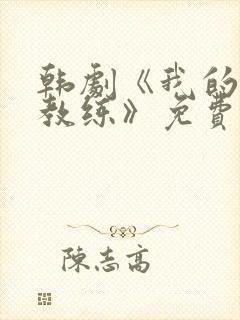 韩劇《我的
教练》免費
陳志高